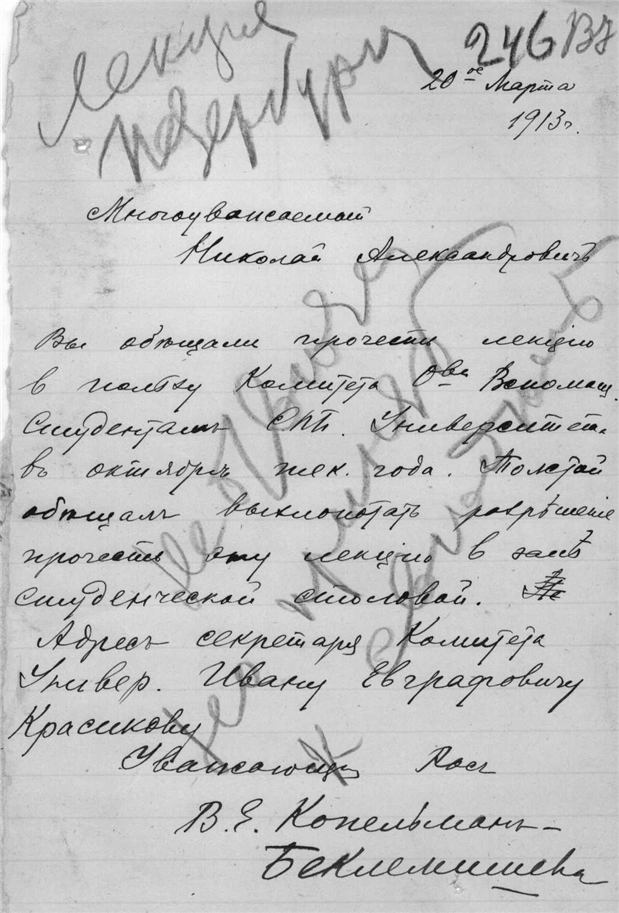 Лекция
Петербург
246 ВЗ
20ое Марта
1913 г.
Многоуважаемый
Николай Александровичъ
Вы обѣщали прочесть лекцію
в пользу Комитета О-ва Вспомощ.
Студентамъ СПБ. Университета
въ октябрѣ тек. года. Толстой
обѣщалъ выхлопотать разрѣшеніе
прочесть эту лекцію в залѣ
студенческой столовой.
Адресъ секретаря Комитета
Универ. Ивану Евграфовичу
Красикову
Уважающая Васъ
В. Е. Копельманъ-
Беклемишева